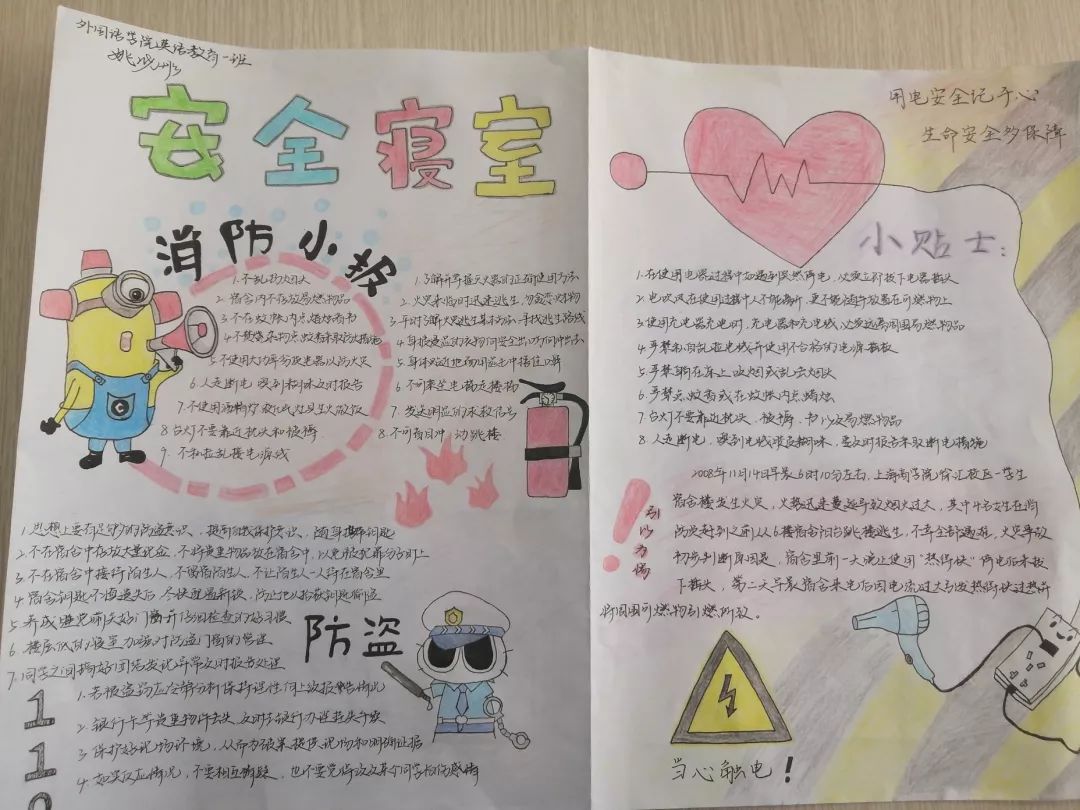 外国语学院英语教育一班
安全寝室
消防小报
1.不乱扔烟头
2.宿舍内不存放易燃物品
3.不在蚊帐内点蜡烛看书
5.不使用大功率劣质电器以防火灾
6.人走断电 嗅到
及时报告
7.不使用
生火做饭
8 台灯不要靠近枕头和被褥
9. 不私拉乱接电源线
1.了解并掌握灭火器的正确使用方法
2.火灾来临时迅速逃生,勿贪恋财物
3.平时了解火灾逃生基本方法 寻找逃生路线
6.不可乘坐电梯走楼梯
7.发送明显的求救信号
8.不可盲目冲动跳楼
1.思想上要有足够的防盗意识、提高自我保护意识、随身携带钥匙
2.不在宿舍中存放大量现金、不将贵重物品放在宿舍中,以免被犯罪分子盯上
3.不在宿舍中接待陌生人、不留宿陌生人、不让陌生人一人待在宿舍里
4.宿舍钥匙不慎遗失后 尽快更换新锁,防止他人拾获钥匙
5.养成
关好门窗
检查的好习惯
6.楼层低的寝室加强对防盗门窗的管理
7.同学之间搞好团结发现异常及时报告处理
防盗
110
1.若被盗后应冷静分析保持理性向上级报告情况
2.银行卡等贵重物件丢失 及时去银行办理挂失手续
3.保护好现场环境,从而为破案提供现场和
证据
4.如实反应情况,不要相互猜疑,也不要凭借
同学间的感情
用电安全记于心
生命安全多保障
小贴士:
1.在使用电器过程中如遇到突然停电,必须立刻拔下电器插头
2.电吹风在使用过程中人不能离开,更不能随手放置在可燃物上
3.使用充电器充电时,充电器和充电线必须远离周围易燃物品
4.严禁私自乱拉电线并使用不合格的电源插板
5.严禁躺在床上吸烟或乱丢烟头
6.严禁点蚊香或在蚊帐内点蜡烛
7.台灯不要靠近枕头、被褥、书以及易燃物品
8.人走断电,嗅到电线
糊味,要及时报告采取断电措施
引以为傷
2008年11月14日早晨6时10分左右,上海商学院徐汇校区一学生
宿舍楼发生火灾,火势迅速蔓延导致烟火过大,其中4名女生在消
防员赶到之前从6楼宿舍阳台跳楼逃生,不幸全部遇难,火灾事故
初步判断原因是,宿舍里前一天晚上使用“热得快”停电后未拔
下插头,第二天早晨宿舍来电后因电流过大引发热得快过热而
将周围可燃物引燃所致。
当心触电!